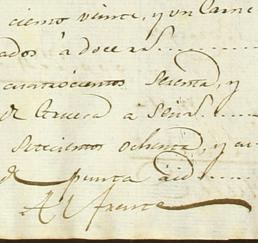 ciento veinte, y un Carne
ados á doce rs.
cuatrocientos sesenta, y
de tercera á seis rs.
setecientos ochenta, y cu
de punta á id.
Al frente